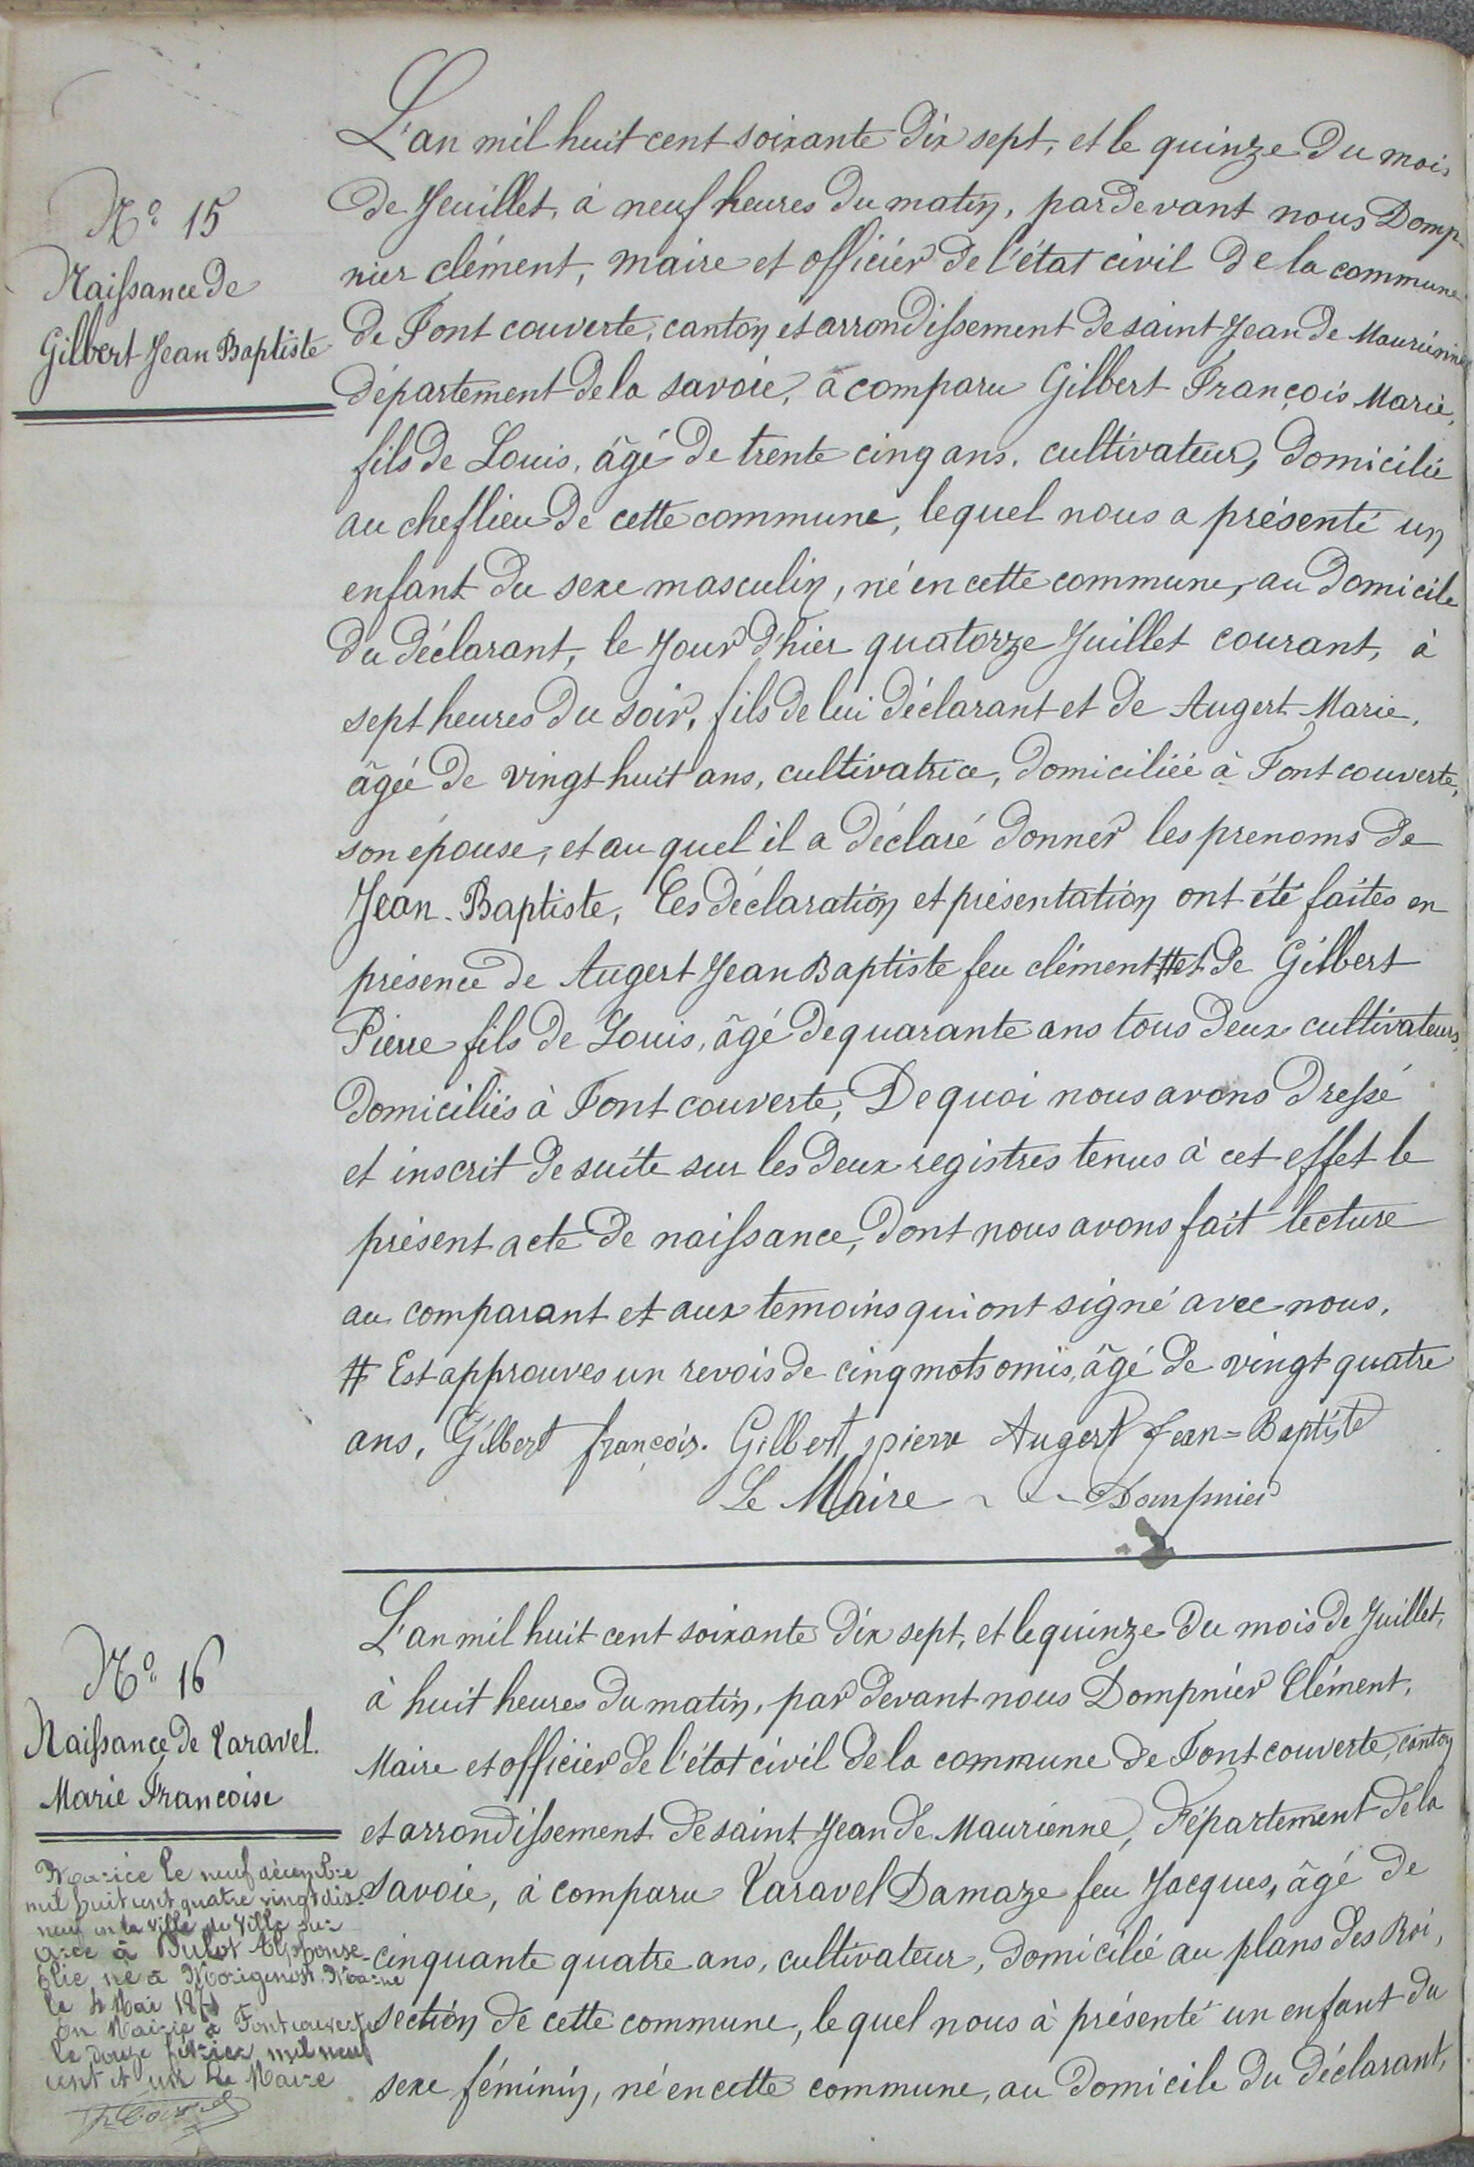 N° 15
Naissance de
Gilbert Jean Baptiste
L'an mil huit cent soixante dix sept, et le quinze du mois
de Jeuillet, à neuf heures du matin, pardevant nous Domp-
nier clément, maire et officier de l'état civil de la commune
de Font couverte, canton et arrondissement de saint Jean de Maurienne
département de la savoie, a comparu Gilbert François Marie,
fils de Louis, âgé de trente cinq ans, cultivateur, domicilié
au cheflieu de cette commune, lequel nous a présenté un
enfant du sexe masculin, né en cette commune, au domicile
du déclarant, le Jour d'hier quatorze Juillet courant, à
sept heures du soir, fils de lui déclarant et de Augert Marie,
âgée de vingt huit ans, cultivatrice, domiciliée à Font couverte,
son épouse, et au quel il a déclaré donner les prenoms de
Jean-Baptiste, Ces déclaration et présentation ont été faites en
présence de Augert Jean Baptiste feu clément # et de Gilbert
Pierre fils de Louis, âgé de quarante ans tous deux cultivateurs,
domiciliés à Font couverte, De quoi nous avons dressé
et inscrit de suite sur les deux registres tenus à cet effet le
présent acte de naissance, dont nous avons fait lecture
au comparant et aux temoins qui ont signé avec nous.
# Est approuves un revois de cinq mots omis, âgé de vingt quatre
ans, Gilbert françois. Gilbert pierre Augert Jean=Baptiste
Le Maire Dompnier
N° 16
Naissance de Caravel
Marie Françoise
L'an mil huit cent soixante dix sept, et le quinze du mois de Juillet,
à huit heures du matin, par devant nous Dompnier Clément,
Maire et officier de l'état civil de la commune de Font couverte, canton
et arrondissement de saint Jean de Maurienne, Département de la
savoie, à comparu Caravel Damaze feu Jacques, âgé de
cinquante quatre ans, cultivateur, domicilié au plans des Roi,
section de cette commune, le quel nous à présenté un enfant du
sexe féminin, né en cette commune, au domicile du déclarant,
Mariée le neuf décembre
mil huit cent quatre vingt dix
neuf en la ville de Ville sur
à Bulot Alphonse
Elie né à Marne
le 4 Mai
En Mairie à Fontcouverte
le douze février mil neuf
cent et un Le Maire